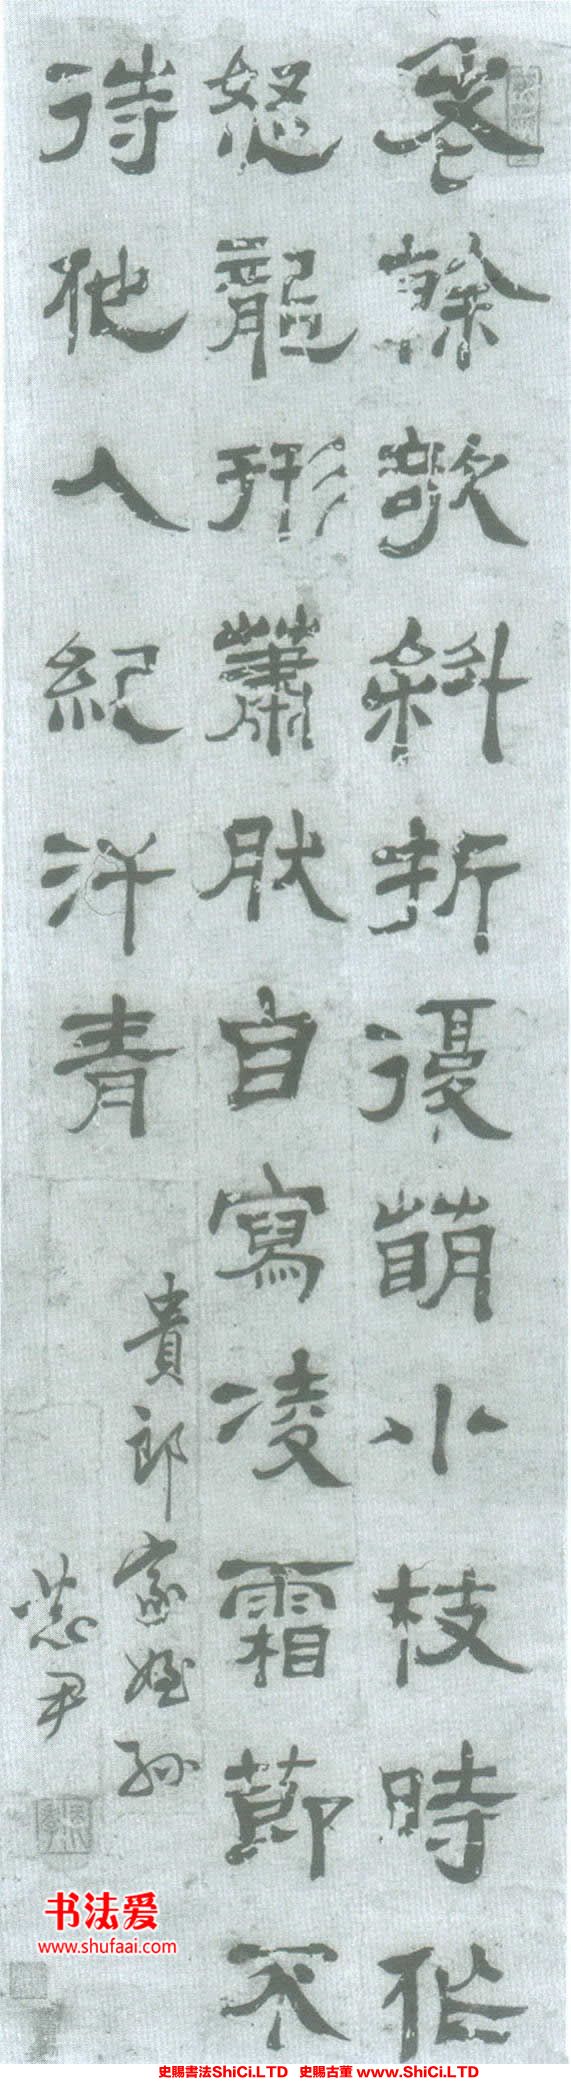 老榦欹斜折復萌小枝時作
怒龍形蕭肰自寫凌霜節不
待他人紀汗青
貴郎家姪孫
书法爱
www.shufaai.com
史賜書法ShiCi.LTD 史賜古董 www.ShiCi.LTD